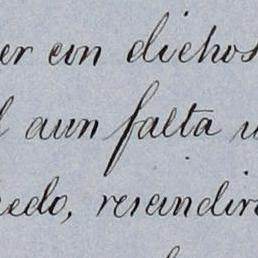 er con dichos
l aun falta u
uedo, rescindir